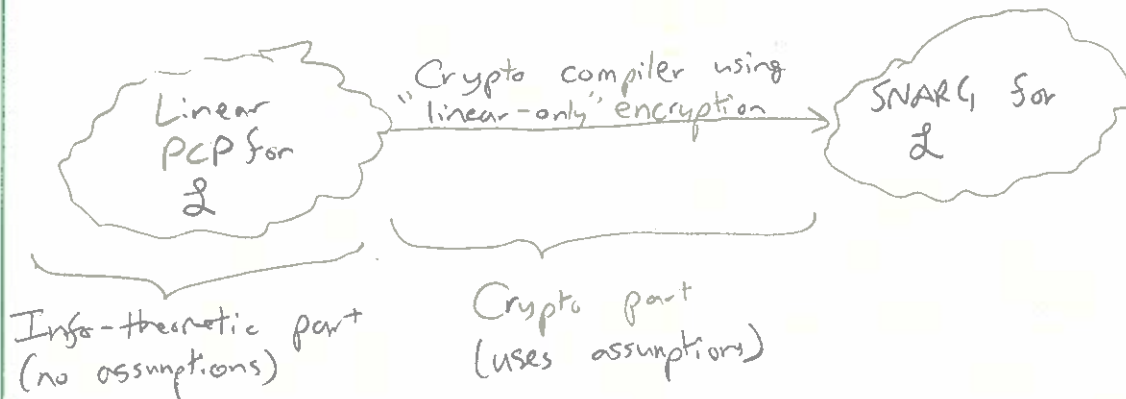 Linear
PCP for
ℒ
Crypto compiler using
"linear-only" encryption
SNARG for
ℒ
Info-theoretic part
(no assumptions)
Crypto part
(uses assumptions)